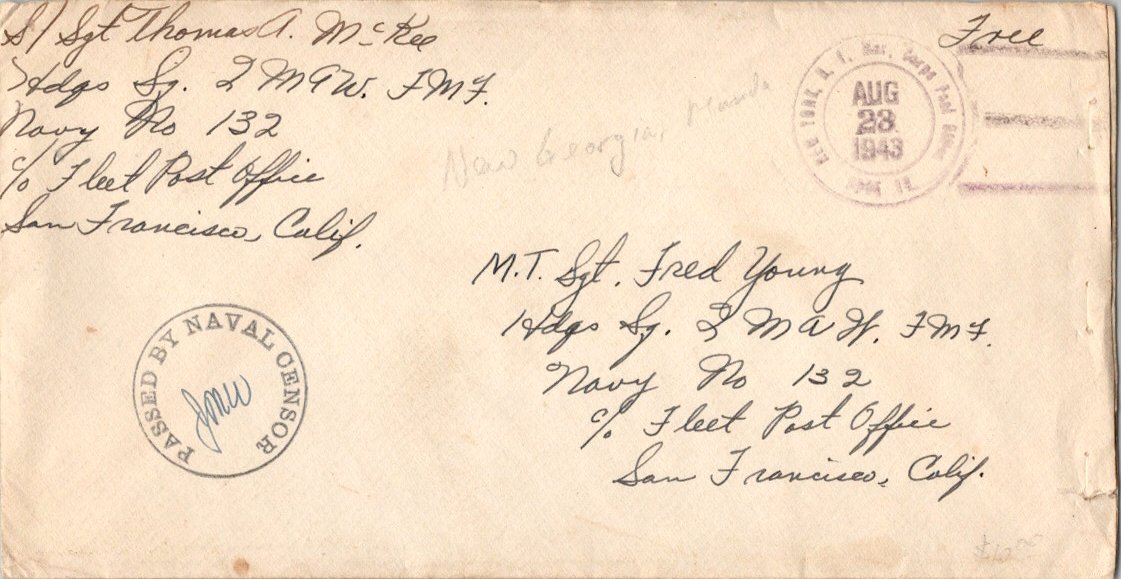 S/Sgt Thomas A. McKee
Hdqs Sq. 2 M A W. F M F.
Navy No 132
c/o Fleet Post Office
San Francisco, Calif.
Free
NEW YORK, N. Y. Mar. Corps Post Office
AUG
23
1943
New Georgia, Munda
M.T. Sgt. Fred Young
Hdqs Sq. 2 M A W. F M F.
Navy No 132
c/o Fleet Post Office
San Francisco, Calif.
PASSED BY NAVAL CENSOR
JMW